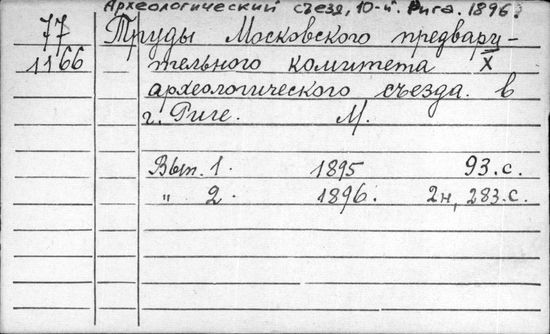 Археологический съезд, 10-й. Рига. 1896.
77 Труды Московского предвару-
1166 тельного комитета X
археологического съезда. в
г. Риге. М.
Вып. 1. 1895 93.с.
" 2. 1896. 2н, 283.с.